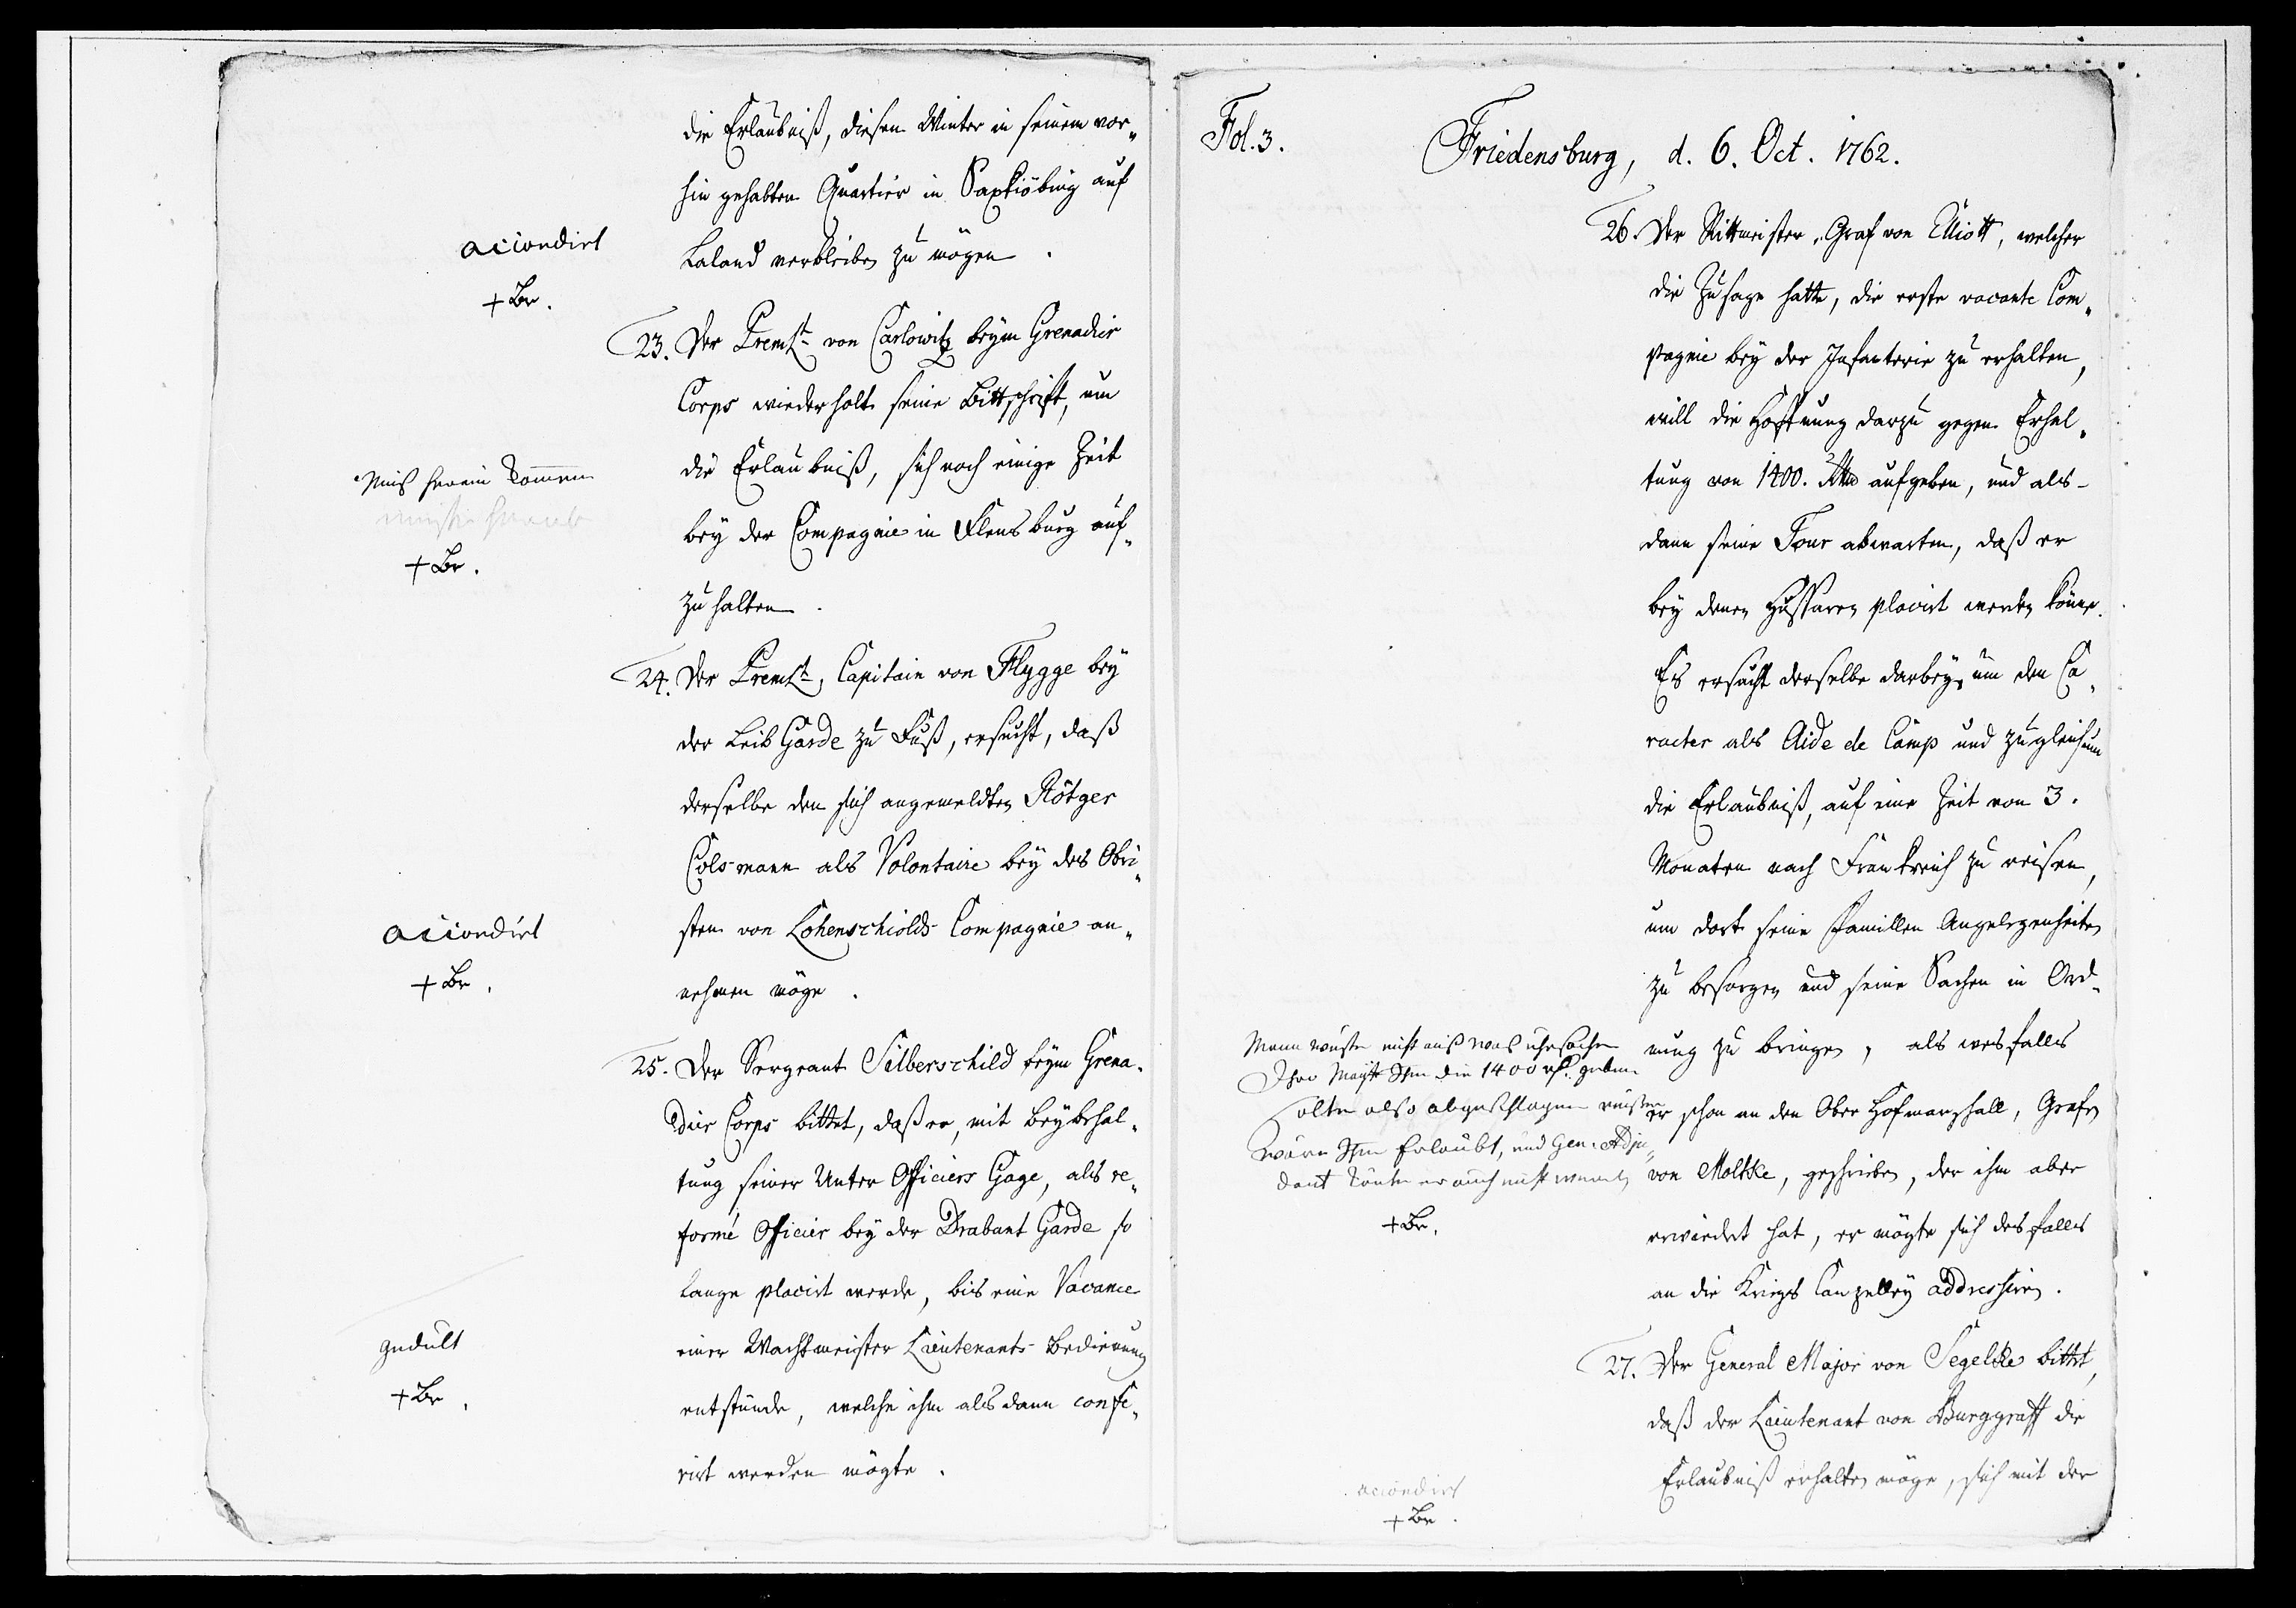 die Erlaubniß, diesen Winter in seinem vor„
hin gehabten Quartier in Saxkiöbing auf
Laland verbleiben zu mögen.
accordirt
+ Br.
23. Der Premlt von Carlowitz beym Grenadier
Corps wiederholt seine Bittschrift, um
die Erlaubniß, sich noch einige Zeit
bey der Compagnie in Flensburg auf„
zuhalten.
Muß herein kommen
+ Br.
24. Der Premlt, Capitain von Flygge bey
der Leib Garde zu Fuß, ersucht, daß
derselbe den sich angemeldten Rötger
Colsmann als Volontaire bey des Obri„
sten von Lohenschiolds Compagnie an„
nehmen möge.
accordirt
+ Br.
25. Der Sergeant Silberschild beym Grena„
dier Corps bittet, daß er, mit Beybehal„
tung seiner Unter Officiers Gage, als re„
formé Officier bey der Drabant Garde so
lange placirt werde, bis eine Vacance
einer Wachtmeister Lieutenants-Bedienung
entstünde, welche ihm alsdann confe„
rirt werden mögte.
gedult
+ Br.
Fol. 3.
Friedensburg, d. 6. Oct. 1762.
26. Der Rittmeister, Graf von Elliott, welcher
die Zusage hatte, die erste vacante Com„
pagnie bey der Infanterie zu erhalten,
will die Hoffnung darzu gegen Erhal„
tung von 1400. Rthlr aufgeben, und als-
dann seine Tour abwarten, daß er
bey denen Hussaren placirt werden könne.
Es ersucht derselbe darbey, um den Ca„
racter als Aide de Camp und zugleich um
die Erlaubniß, auf eine Zeit von 3.
Monaten nach Frankreich zu reisen,
um dort seine Famillen Angelegenheiten
zu besorgen und seine Sachen in Ord„
nung zu bringen, als wesfalls
er schon an den Ober Hofmarschall, Grafen
von Moltke, geschrieben, der ihm aber
erwiedert hat, er mögte sich desfalls
an die Kriegs Canzelley addressiren.
Mann wuste nicht auß was uhrsachen
Ihro Maÿtt Ihm die 1400 rh. geben
solte also abgeschlagen reisen
wäre Ihm Erlaubt, und Gen: Adju„
dant könte er auch nicht werden
+ Br.
27. Der General Major von Segelke bittet,
daß der Lieutenant von Burggraff die
Erlaubniß erhalten möge, sich mit der
accordirt
+ Br.